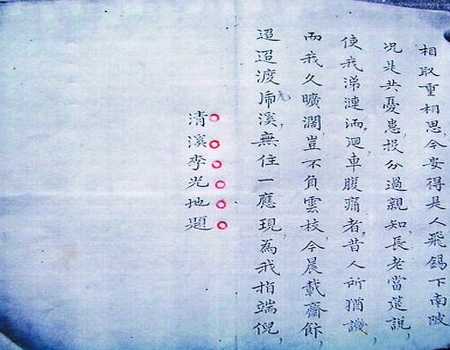 相取重相思今安得是人飛錫下南陂
况是共憂患投分過親知長老當莚説，
使我涕漣洏迴車腹痛者，昔人所猶譏，
而我久曠濶豈不負雲枝，今晨載齋餘，
迢迢渡虎溪，無住一應現為我指端倪，
清溪李光地題